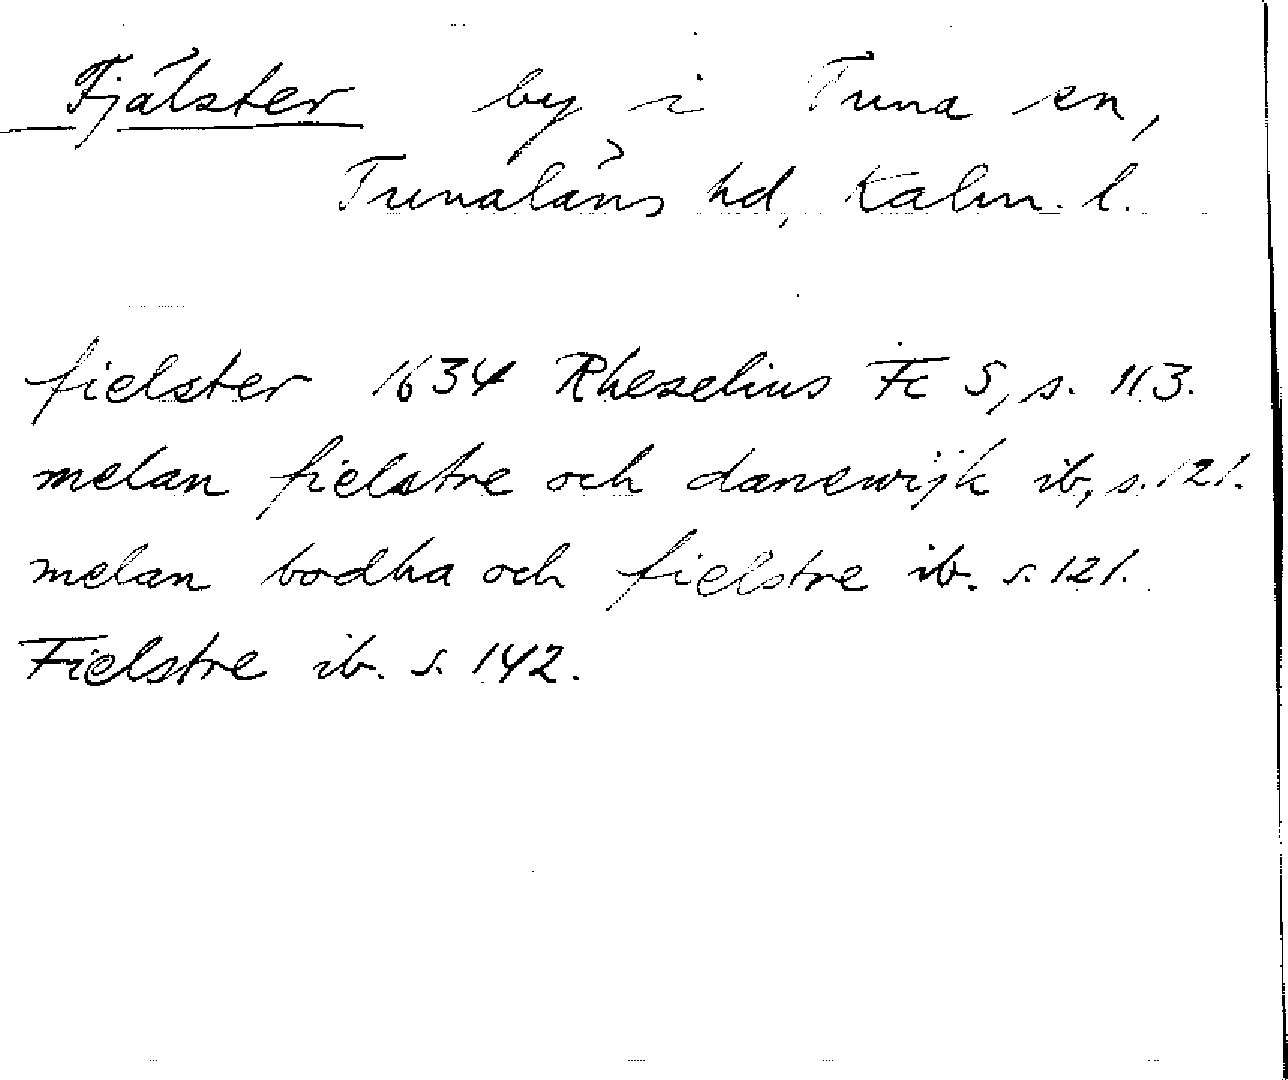 Fjälster by i Tuna sn,
Tunaläns hd, Kalm. l.
fielster 1634 Rhezelius Fc 5, s. 113.
melan fielstre och danewijk ib, s. 121.
melan bodha och fielstre ib. s. 121.
Fielstre ib. s. 142.